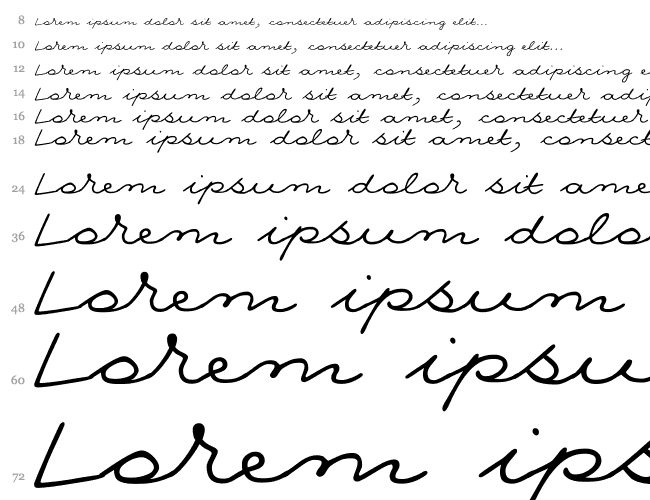 8 Lorem ipsum dolor sit amet, consectetuer adipiscing elit...
10 Lorem ipsum dolor sit amet, consectetuer adipiscing elit...
12 Lorem ipsum dolor sit amet, consectetuer adipiscing e
14 Lorem ipsum dolor sit amet, consectetuer adip
16 Lorem ipsum dolor sit amet, consectetuer
18 Lorem ipsum dolor sit amet, consect
24 Lorem ipsum dolor sit ame
36 Lorem ipsum dolo
48 Lorem ipsum
60 Lorem ipsu
72 Lorem ips